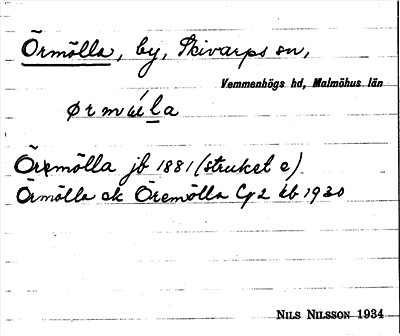 Örmölla, by, Skivarps sn,
Vemmenhögs hd, Malmöhus län
Öremölla jb 1881 (struket e)
Örmölla ek Öremölla Cg 2 kb 1930
NILS NILSSON 1934